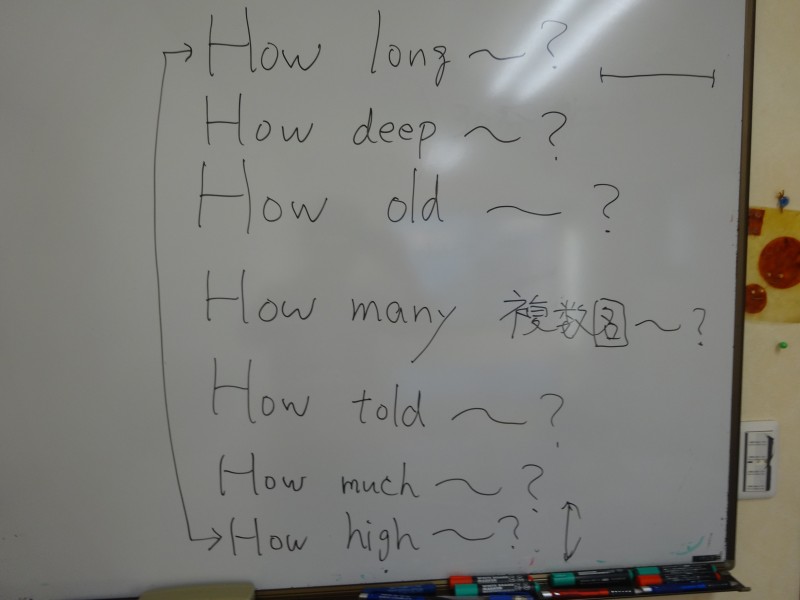 How long ～?
How deep ～?
How old ～?
How many 複数名～?
How told ～?
How much ～?
How high ～?